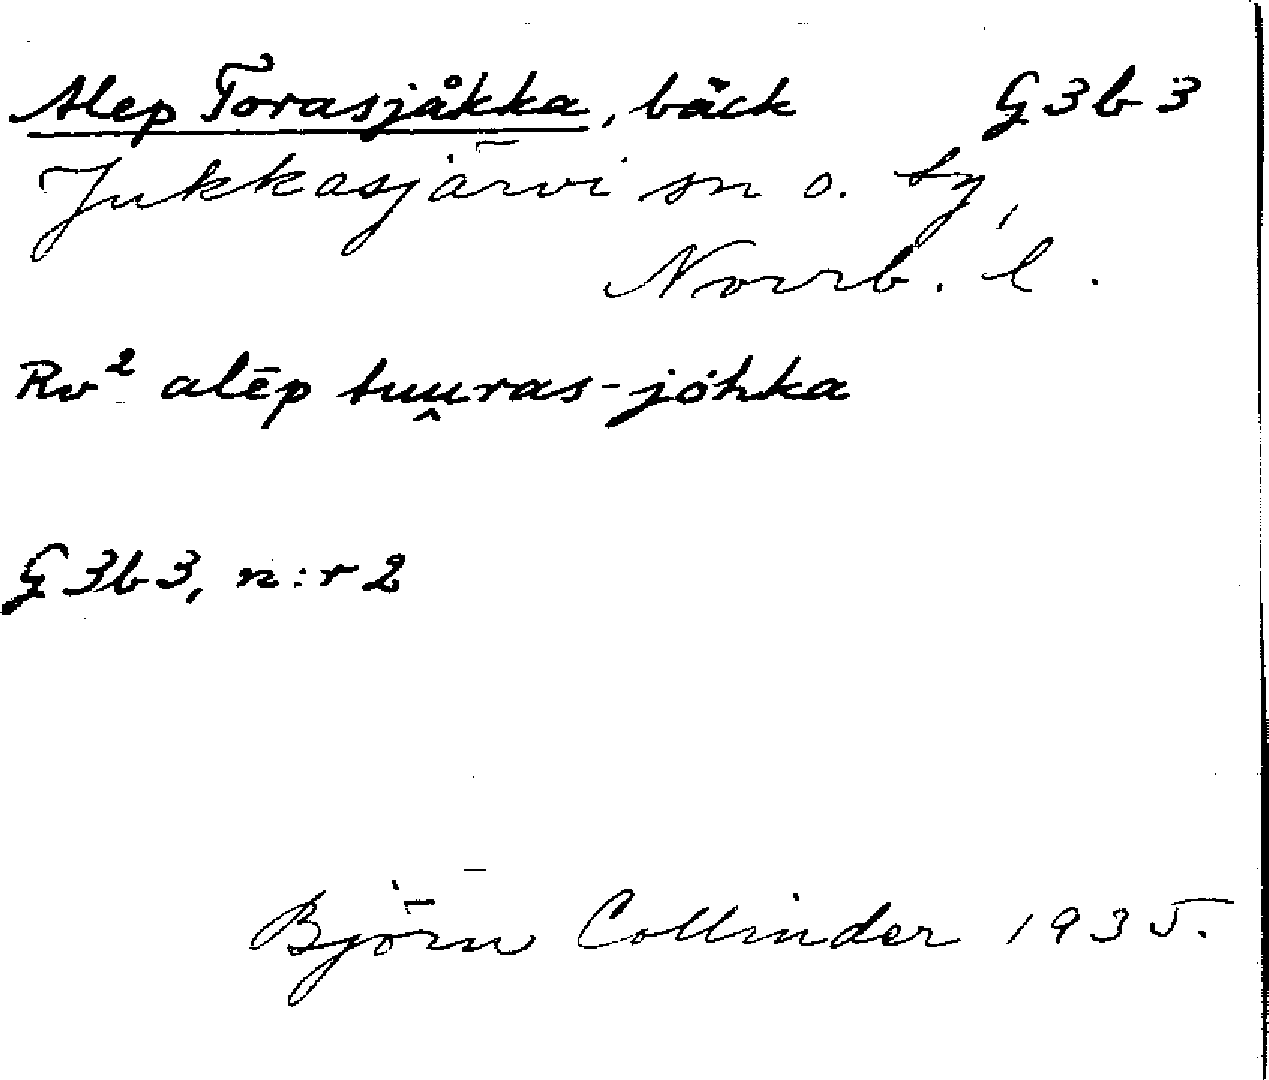 Alep Torasjåkka, bäck G3b3
Jukkasjärvi sn o. ty,
Norrb. l.
Rv² alēp tuṷras-jóhka
G3b3, n:r 2
Björn Collinder 1935.